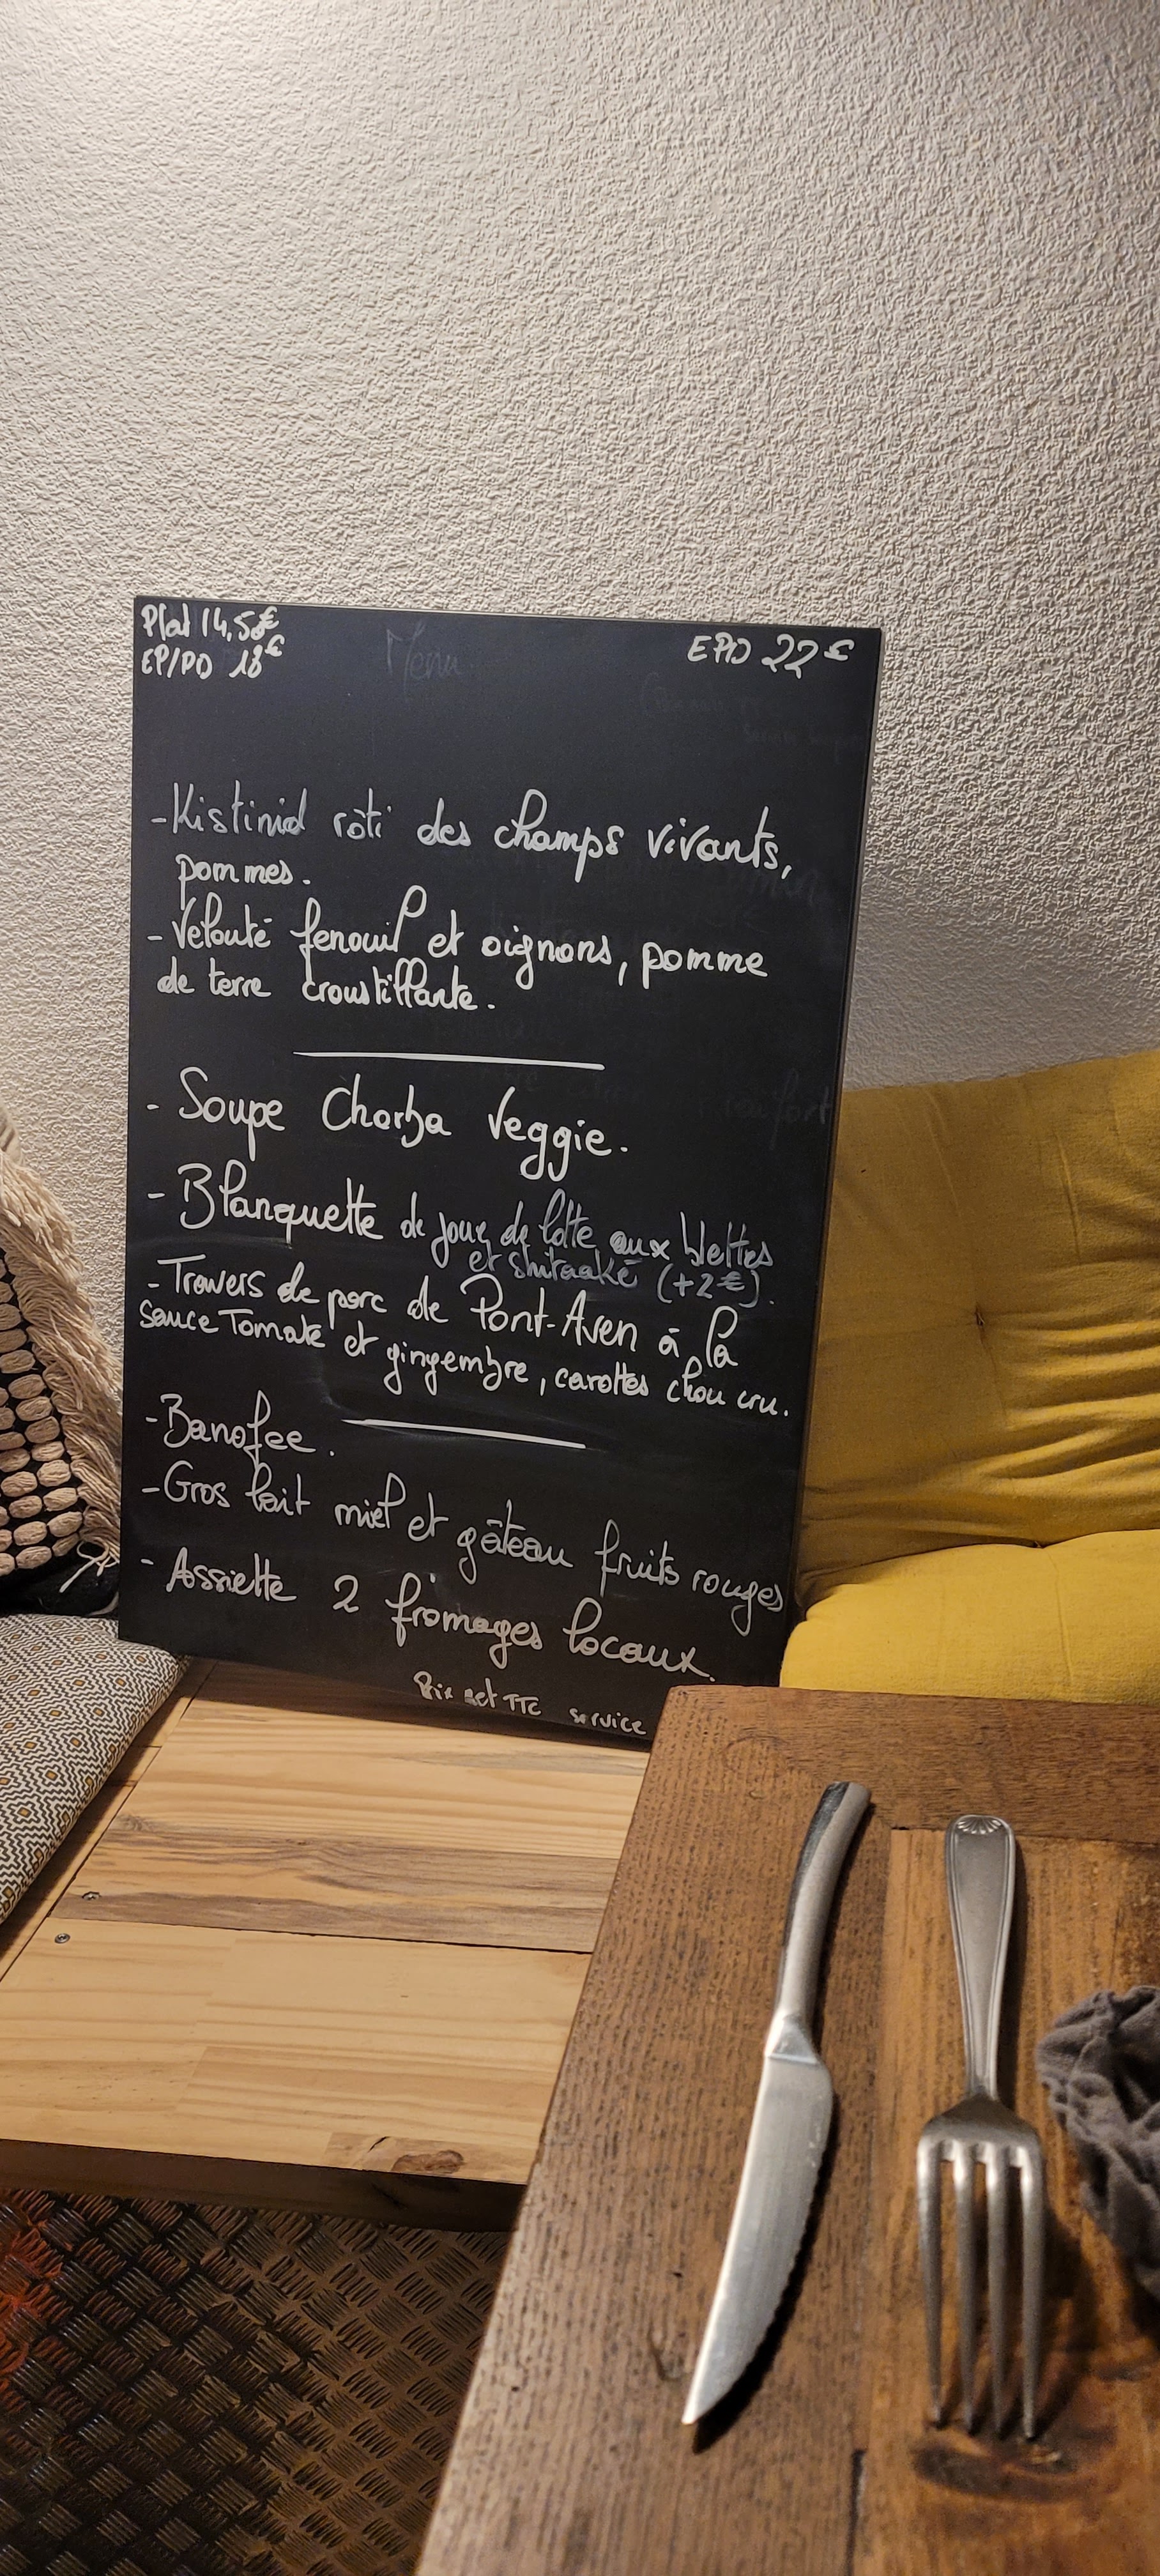 Plat 14,5€
EP/PD 18€
EPD 22€
Menu
-Kistinid rôti des champs vivants,
pommes.
- Velouté fenouil et oignons, pomme
de terre croustillante.
- Soupe Chorba Veggie.
- Blanquette de joue de lotte aux blettes
et shitaaké (+2€).
-Travers de porc de Pont-Aven à la
sauce Tomate et gingembre, carottes chou cru.
-Banofee.
-Gros lait miel et gâteau fruits rouges
- Assiette 2 fromages locaux.
Prix net TTC service